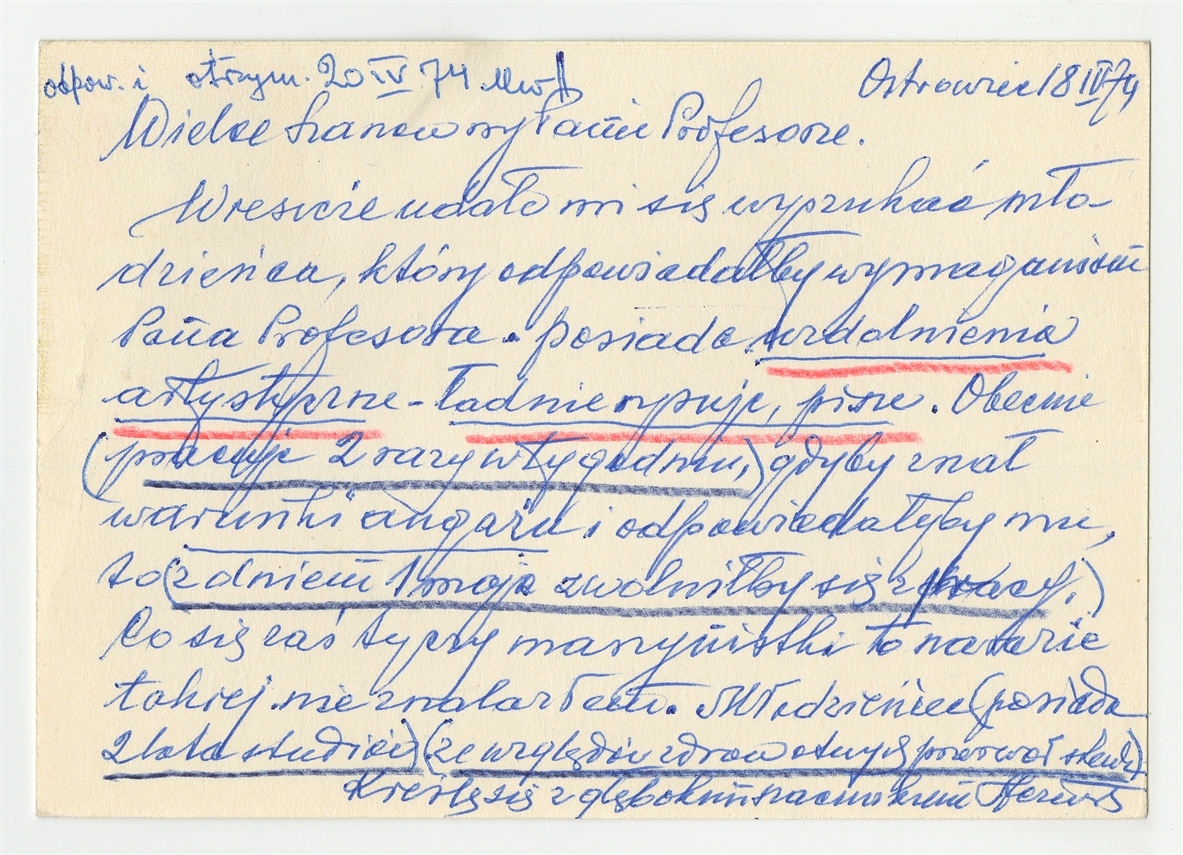 odpow. i otrzym. 20 IV 74
Ostrowiec 18 IV 74
Wielce Szanowny Panie Profesorze.
Wreszcie udało mi się wyszukać mło-
dzieńca, który odpowiadałby wymaganiom
Pana Profesora. posiada uzdolnienia
artystyczne - ładnie rysuje, pisze. Obecnie
(pracuje 2 razy w tygodniu,) gdyby znał
warunki angażu i odpowiadałyby mu,
to (z dniem 1 maja zwolniłby się z pracy.)
Co się zaś tyczy maszynistki to na razie
takiej nie znalazłem. Młodzieniec (posiada
2 lata studiów) (ze względów zdrowotnych przerwał studia)
Kreślę się z głębokim szacunkiem